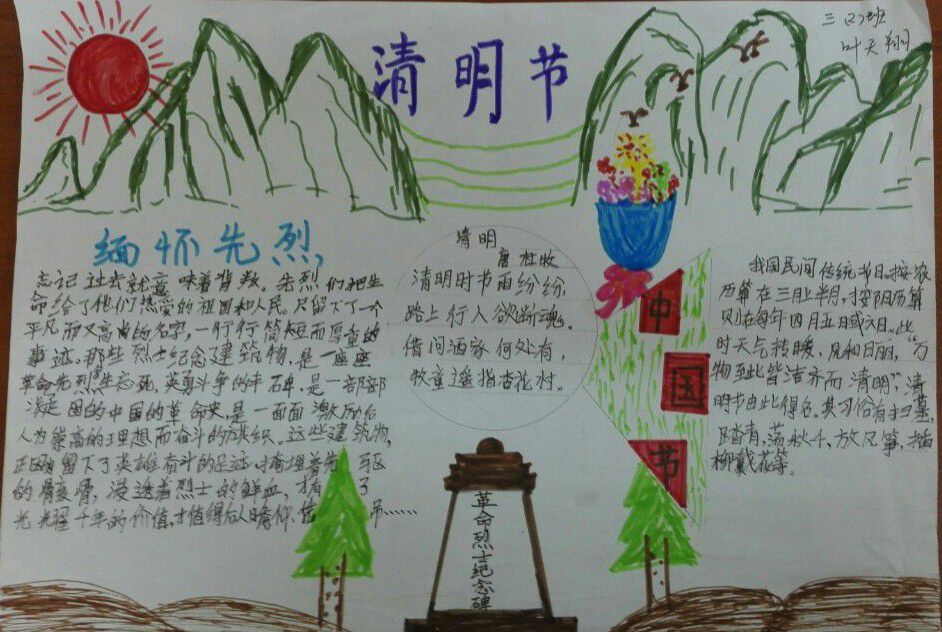 清明节
三(2)班
叶天翔
缅怀先烈
忘记过去就意味着背叛。先烈们把生
命给了他们热爱的祖国和人民。只留下了一个
平凡而又高尚的名字,一行行简短而厚重的
事迹。那些烈士纪念建筑物,是一座座
革命先烈生态死,英勇斗争的丰石卑,是一部部
凝固的中国的革命史,是一面面激励后
人为崇高的理想而奋斗的旗织。这些建筑物,
留下了英雄奋斗的足迹,掩埋着先 躯
的骨,浸透着烈士的鲜血,才有 了
光耀千年的价值,才值得后人瞻仰、 吊……
清明
唐 杜牧
清明时节雨纷纷
路上行人欲断魂。
借问酒家何处有,
牧童遥指杏花村。
中
国
节
我国民间传统节日。按农
历算在三月上半月,按阳历算
则在每年四月五日或六日。此
时天气转暖,风和日丽,“万
物至此皆洁齐而清明”,清
明节由此得名。其习俗有扫墓、
踏青、荡秋千、放风筝、插
柳戴花等。
革命烈士纪念碑